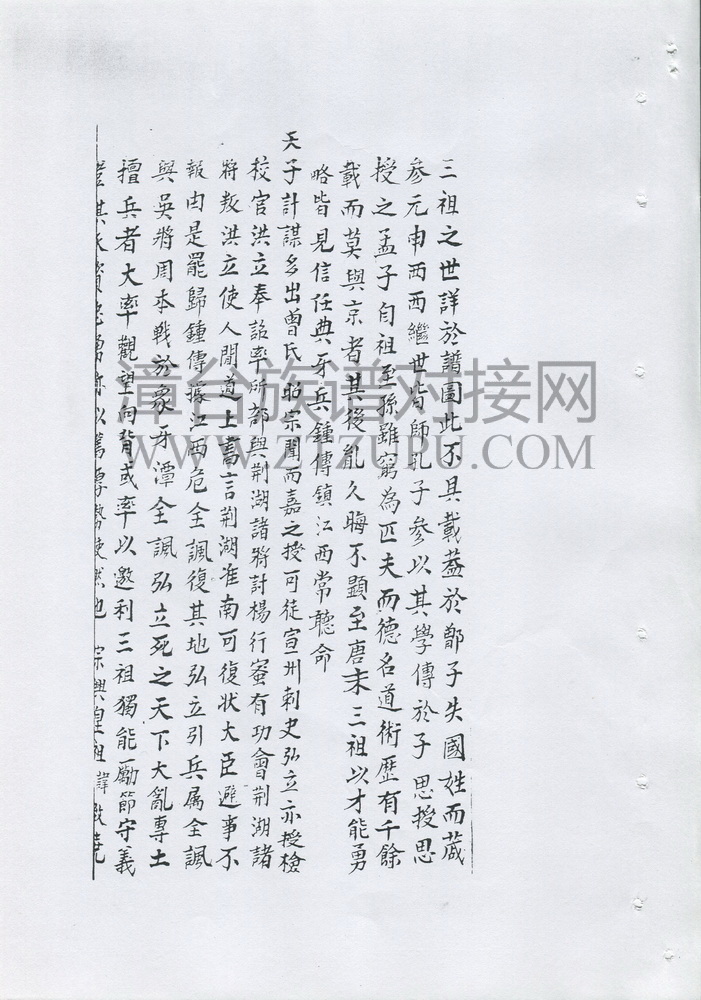 三祖之世詳於譜圖此不具載葢於鄫子失國姓而蒧
參元申西西繼世皆師孔子參以其學傳於子思授思
授之孟子自祖至孫雖窮為匹夫而德名道術歷有千餘
載而莫與京者其後亂久晦不顯至唐末三祖以才能勇
略皆見信任典牙兵鍾傳鎮江西常聽命
天子計謀多出曾氏昭宗聞而嘉之授可徒宣州刺史弘立亦授檢
校官洪立奉詔率所部與荆湖諸將討楊行蜜有功會荆湖諸
將叛洪立使人間道上書言荆湖淮南可復状大臣避事不
報由是罷歸鍾傳據江西危全諷復其地弘立引兵属全諷
與吳將周本戰於象牙潭全諷弘立死之天下大亂專土
擅兵者大率觀望向背或率以邀利三祖獨能勵節守義
以篤厚 使然也 宗興皇祖諱
漳台族谱对接网
WWW.ZTZUPU.COM